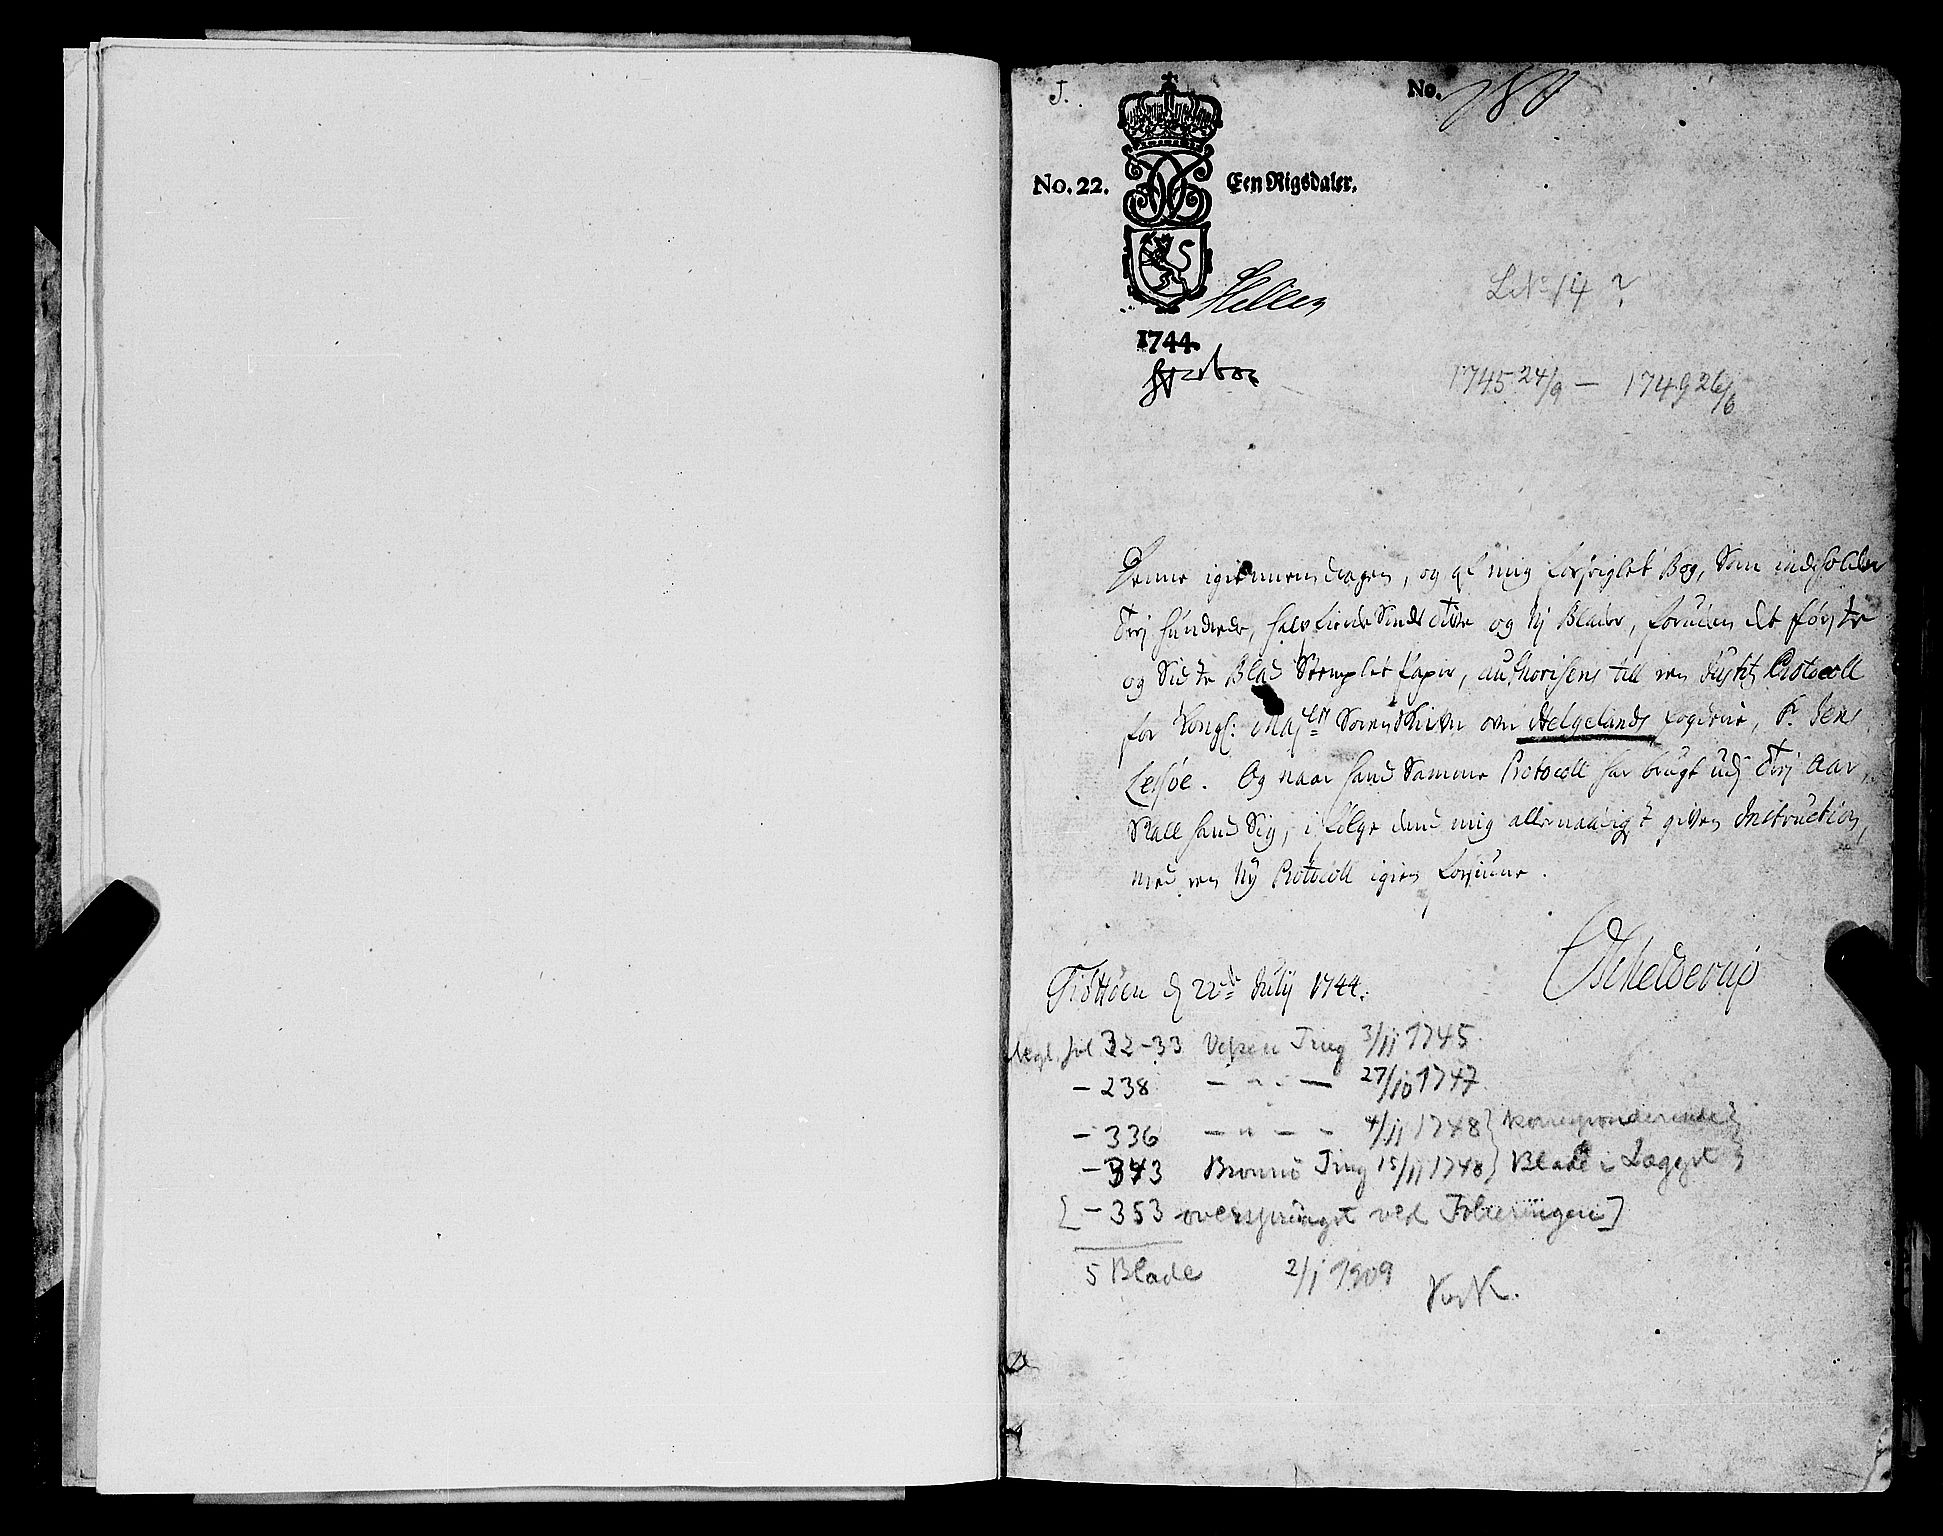 J.
No. 
No. 22. Een Rigsdaler.
Hellen
L No 14 ?
1744.
1745 24/9 — 1749 26/6
Denne igiennemdragen, og af mig forseglet Bog, Som indeholder
Trej hundrede, halvfierdesinds tive og Nj Blader, foruden det første
og Sidste Blad Stemplet papir, authoriseres till een Justitz Protocoll
for Kongl: Maj:ts Sorenskriver over Helgelands fogderie, Sr. Jens
. Og naar hand Samme Protocoll har brugt udj Trej Aar,
Skall hand Sig, i følge dend mig allernaadigst given Instruction,
med een Ny Protocoll igien forsiune.
OSchelderup
Tiøttøen d 22de Julij 1744.
Mgl. fol 32-33 Vefsen Ting 3/11 1745
- 238 - " - — 27/10 1747
- 336 - " - - 4/11 1748 } korresponderende
- 343 Brønnø Ting 15/11 1748 } Blade i Lægget
[ - 353 oversprunget ved Folieringen]
5 Blade 2/1 1909